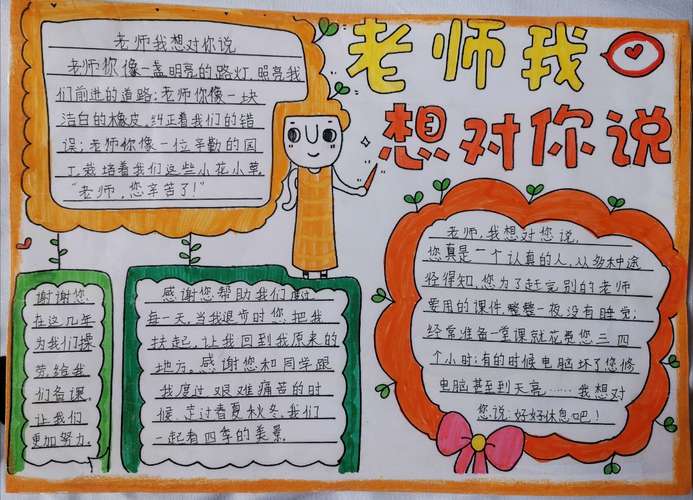 老师我
想对你说
老师我想对你说
老师你像一盏明亮的路灯,照亮我
们前进的道路;老师你像一块
洁白的橡皮,纠正着我们的错
误;老师你像一位辛勤的园
丁,栽培着我们这些小花小草.
“老师,您辛苦了!”
谢谢您
在这几年
为我们操
劳,给我
们备课,
让我们
更加努力.
感谢您帮助我们度过
每一天,当我退步时您把我
扶起,让我回到我原来的
地方。感谢您和同学跟
我度过艰难痛苦的时
候,走过春夏秋冬,我们
一起看四季的美景.
老师,我想对您说,
您真是一个认真的人,从多种途
径得知,您为了赶完别的老师
要用的课件,整整一夜没有睡觉;
经常准备一堂课就花费您三四
个小时;有的时候电脑坏了您修
电脑甚至到天亮……我想对
您说:好好休息吧!